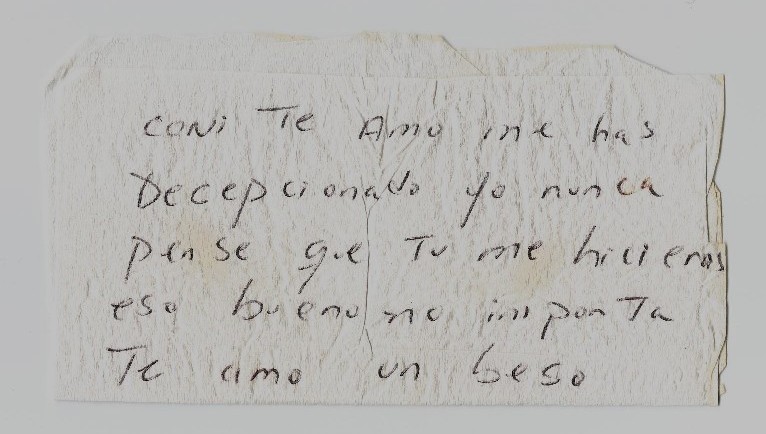 CONi Te Amo me has
Decepcionado yo nunca
pense que Tu me hicieras
eso bueno no imporTa
Te amo un beso